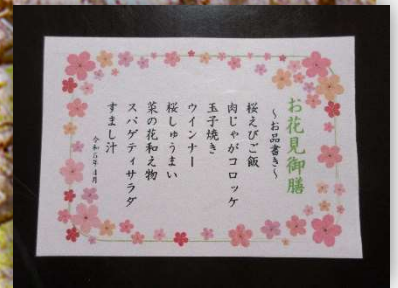 お花見御膳
～お品書き～
桜えびご飯
肉じゃがコロッケ
玉子焼き
ウインナー
桜しゅうまい
菜の花和え物
スパゲティサラダ
すまし汁
令和５年４月